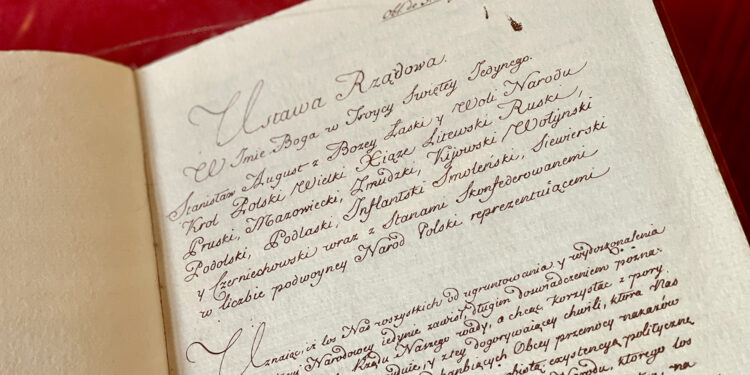 Ustawa Rządowa.
W Imie Boga w Troycy Swiętey Jedynego.
Stanisław August z Bożey Łaski y Woli Narodu
Krol Polski Wielki Xiąże Litewski Ruski,
Pruski, Mazowiecki, Zmudzki, Kijowski Wołyński
Podolski, Podlaski, Inflantski Smoleński, Siewierski
y Czerniechowski wraz z Stanami Skonfederowanemi
w liczbie podwoyney Narod Polski reprezentuiącemi
Uznaiąc, iż los Nas wszystkich od ugruntowania y wydoskonalenia
Narodowey iedynie zawisł, długim doświadczeniem pozna
Rządu Naszego wady, a chcąc korzystać z pory
y z tey dogorywaiącey chwili, która Nas
hanbiących Obcey przemocy nakazów
exystencyą polityczną
Narodu, którego los
na